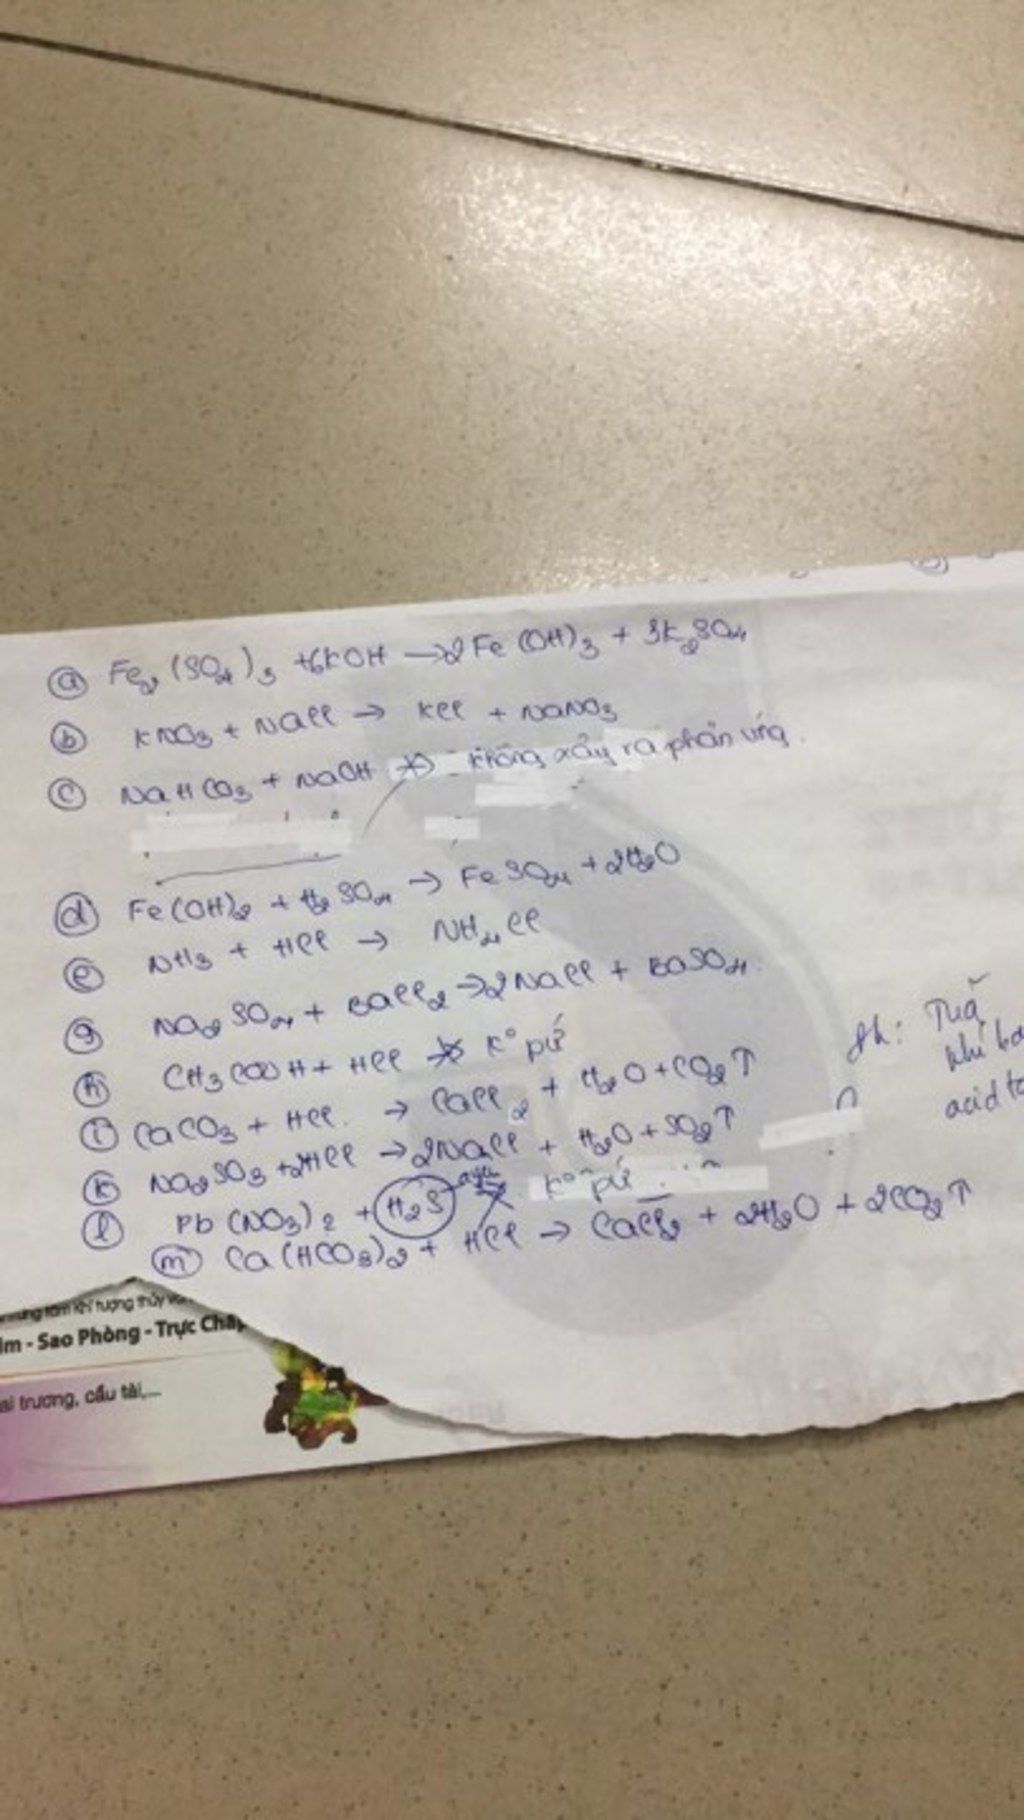 ⓐ Fe₂(SO₄)₃ + 6KOH → 2Fe(OH)₃ + 3K₂SO₄
ⓑ KNO₃ + NaCl → KCl + NaNO₃
ⓒ NaHCO₃ + NaOH không xảy ra phản ứng.
ⓓ Fe(OH)₂ + H₂SO₄ → FeSO₄ + 2H₂O
ⓔ NH₃ + HCl → NH₄Cl
ⓖ Na₂SO₄ + BaCl₂ → 2NaCl + BaSO₄.
ⓗ CH₃COOH + HCl K° pứ
ⓘ CaCO₃ + HCl. → CaCl₂ + H₂O + CO₂↑
ⓚ Na₂SO₃ + 2HCl → 2NaCl + H₂O + SO₂↑
ⓛ Pb(NO₃)₂ + H₂S K° pứ.
ⓜ Ca(HCO₃)₂ + HCl → CaCl₂ + 2H₂O + 2CO₂↑
khí
acid
trung tâm khí tượng thủy
- Sao Phòng - Trực
trương, cầu tài,...